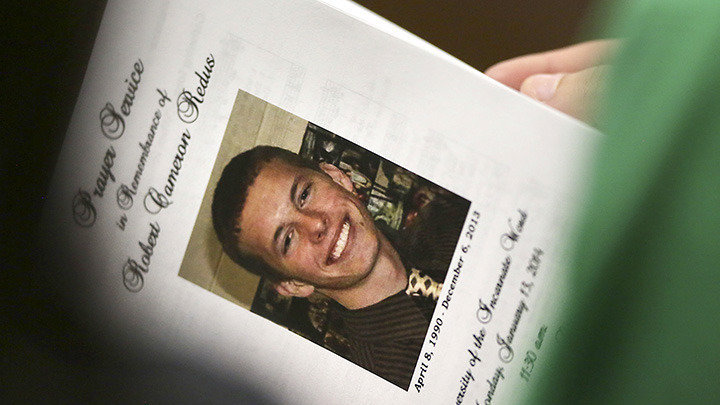 Prayer Service
in Remembrance of
Robert Cameron Redus
April 8, 1990 - December 6, 2013
of the Incarnate Word
January 13, 2014
11:30 a.m.